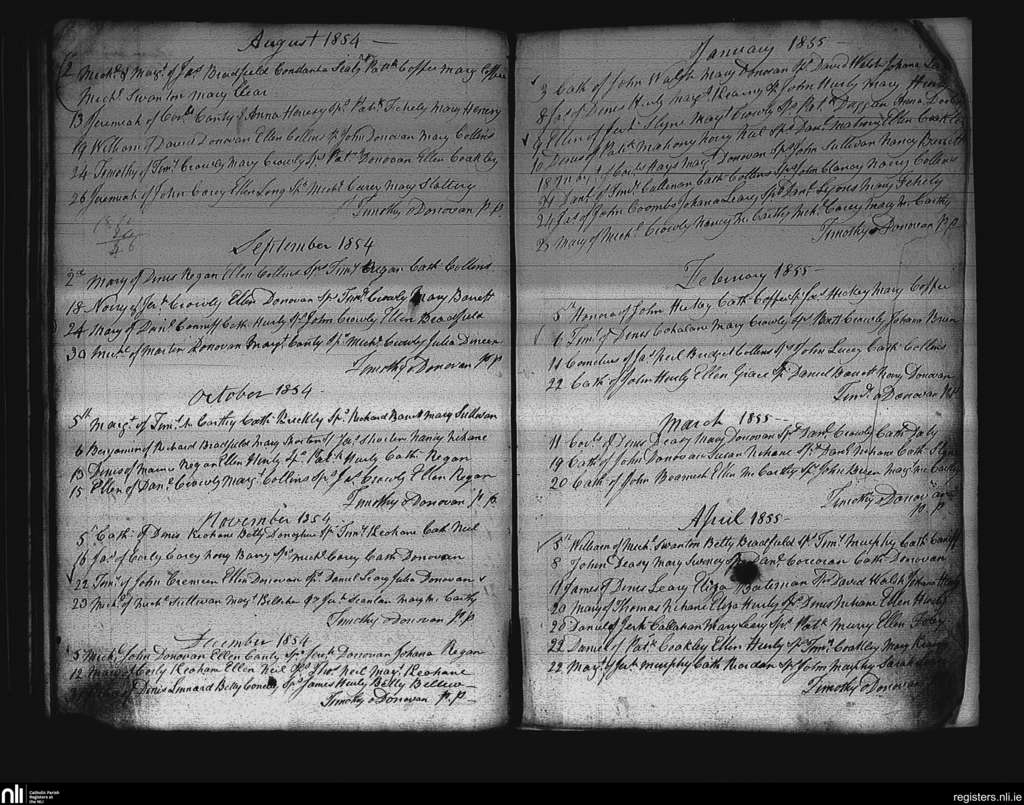 August 1854
2 Mich.l & Marg.t of Ja.s Bradfield Constantia Sealy Pat.k Coffee Mary Coffee
Mich.l Swanton Mary Clear
13 Jeremiah of Cor.ls Canty & Anna Henery Sp.s Pat.k Fehely Mary Henery
19 William of David Donovan Ellen Collins Sp.s John Donovan Mary Collins
24 Timothy of Tim.y Crowly Mary Crowly Sp.s Pat.k Donovan Ellen Coakley
26 Jeremiah of John Carey Ellen Long Sp.s Mich.l Carey Mary Slattery
Timothy o Donovan P.P.
September 1854
2nd Mary of Dinis Regan Ellen Collins Sp.s Tim.y Regan Cath Collins
18 Nory of Ja.s Crowly Ellen Donovan Sp.s Tim.y Crowly Mary Barrett
24 Mary of Cath Hurly Sp.s John Crowly Ellen Bradfield
30 Mich.l of Martin Donovan Marg.t Canty Sp.s Mich.l Crowly Julia
Timothy o Donovan P.P.
October 1854
5th Marg.t of Tim.y Mc Carthy Cath Buckley Sp.s Richard Barrett Mary Sullivan
6 Benjamin of Richard Bradfield Mary Shorten Sp.s Ja.s Shorten Nancy Nehane
13 Dinis of Regan Ellen Hurly Sp.s Pat.k Hurly Cath Regan
15 Ellen of Dan.l Crowly Marg.t Collins Sp.s Ja.s Crowly Ellen Regan
Timothy o Donovan P.P.
November 1854
5 Cath of Dinis Keohane Betty Donoghue Sp.s Tim.y Keohane Cath Neil
16 Ja.s of Corly Carey Nory Barry Sp.s Mich.l Carey Cath Donovan
22 Tim.y of John Cremeen Ellen Donovan Sp.s Daniel Leary Julia Donovan
23 Mich.l of Mich.l Sullivan Mary Sp.s Scanlan Marg.t Mc Carthy
Timothy o Donovan P.P.
December 1854
5 Mich.l John Donovan Ellen Canty Sp.s Donovan Johana Regan
12 Mary of Corly Keohane Ellen Neil Sp.s Tho.s Neil Mary Keohane
Dinis Linnard Betty Sp.s James Hurly Betty
Timothy o Donovan P.P.
January 1855
3 Cath of John Walsh Mary Donovan Sp.s David Walsh Johana
8 Ja.s of Dinis Hurly Marg.t Kearny Sp.s John Hurly Mary
9 Ellen of Slyne Marg.t Crowly Sp.s Pat.k Duggan Anna
10 Dinis of Pat.k Mahony Nory Neil Sp.s Dan.l Mahony Ellen
18 of Hays Marg.t Donovan Sp.s John Sullivan Nancy
21 Dan.l of Tim.y Callanan Cath Collins Sp.s John Clancy Nancy Collins
24 Ja.s of John Coombs Johana Leary Sp.s Dan.l Lyons Mary Fehely
25 Mary of Mich.l Crowly Nancy Mc Carthy Mich.l Carey Mary Mc Carthy
Timothy o Donovan P.P.
February 1855
5th Honora of John Hickey Cath Coffee Sp.s Ja.s Hickey Mary Coffee
6 Tim.y of Dinis Cohalan Mary Crowly Sp.s Bart Crowly Johana Brien
11 Cornelius of Ja.s Neil Bridget Collins Sp.s John Lucey Cath Collins
22 Cath of John Hurly Ellen Grace Sp.s Daniel Barrett Nory Donovan
Tim.y o Donovan P.P.
March 1855
11 Cor.ls of Dinis Deasy Mary Donovan Sp.s Dan.l Crowly Cath Daly
19 Cath of John Donovan Susan Nehane Sp.s Dan.l Nehane Cath Slyne
20 Cath of John Ellen Mc Carthy Sp.s John Brien Marg.t Mc Carthy
Timothy o Donovan
P.P.
April 1855
5th William of Mich.l Swanton Betty Bradfield Sp.s Tim.y Murphy Cath Canty
8 John Deasy Mary Swiney Sp.s Dan.l Corcoran Cath Donovan
11 James of Dinis Leary Eliza Bateman Sp.s David Walsh Johana
20 Mary of Thomas Nehane Eliza Hurly Sp.s Dinis Nehane Ellen Hurly
20 Daniel of Jer.h Callahan Mary Leary Sp.s Pat.k Murry Ellen Foley
22 Daniel of Pat.k Coakley Ellen Hurly Sp.s Tim.y Coakley Mary
22 Mary of Murphy Cath Riordan Sp.s John Murphy Sarah
Timothy o Donovan
nli Catholic Parish
Registers at
the NLI
registers.nli.ie